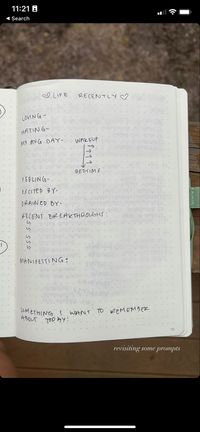 11:21
Search
LIFE RECENTLY
LOVING-
HATING-
MY AVG DAY- WAKEUP
BEDTIME
FEELING-
EXCITED BY-
DRAINED BY-
RECENT BREAKTHROUGHS
MANIFESTING:
SOMETHING I WANT TO REMEMBER
ABOUT TODAY:
revisiting some prompts